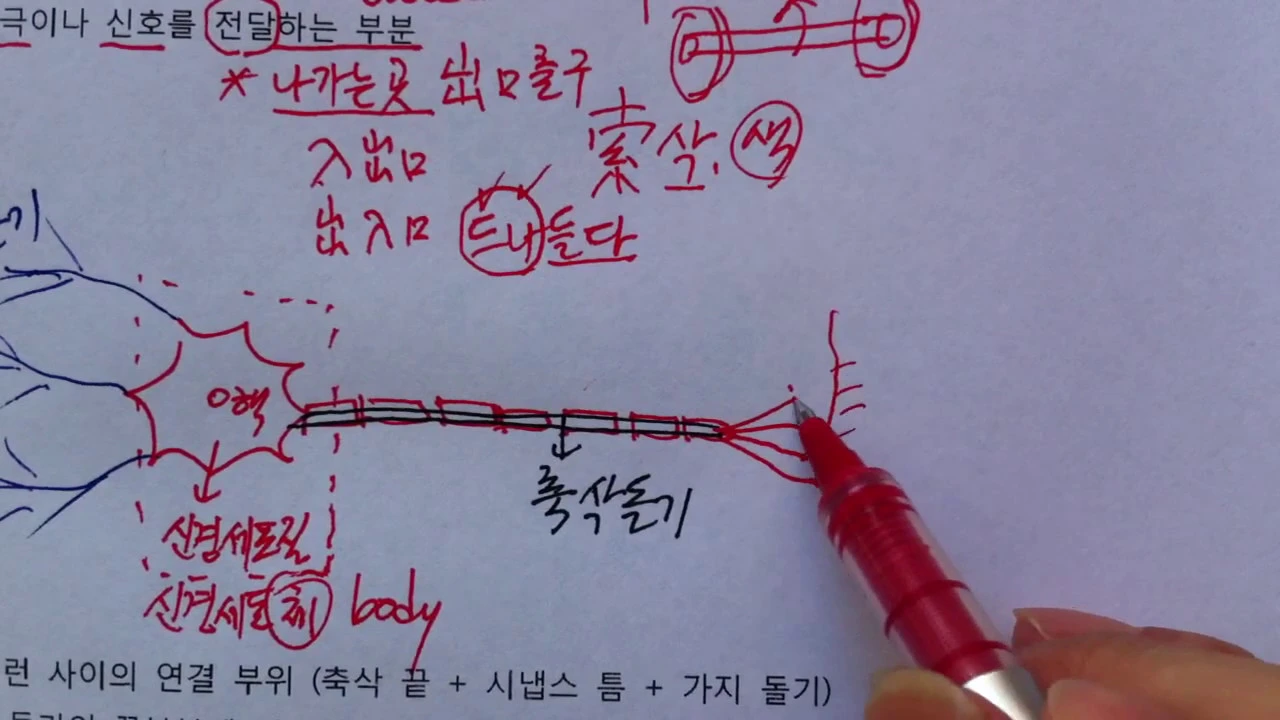 극이나 신호를 전달하는 부분
* 나가는 곳 出口 출구
索 삭. 색
入出口
出入口 드나들다
핵
축삭돌기
신경세포질
신경세포체 body
런 사이의 연결 부위 (축삭 끝 + 시냅스 틈 + 가지 돌기)